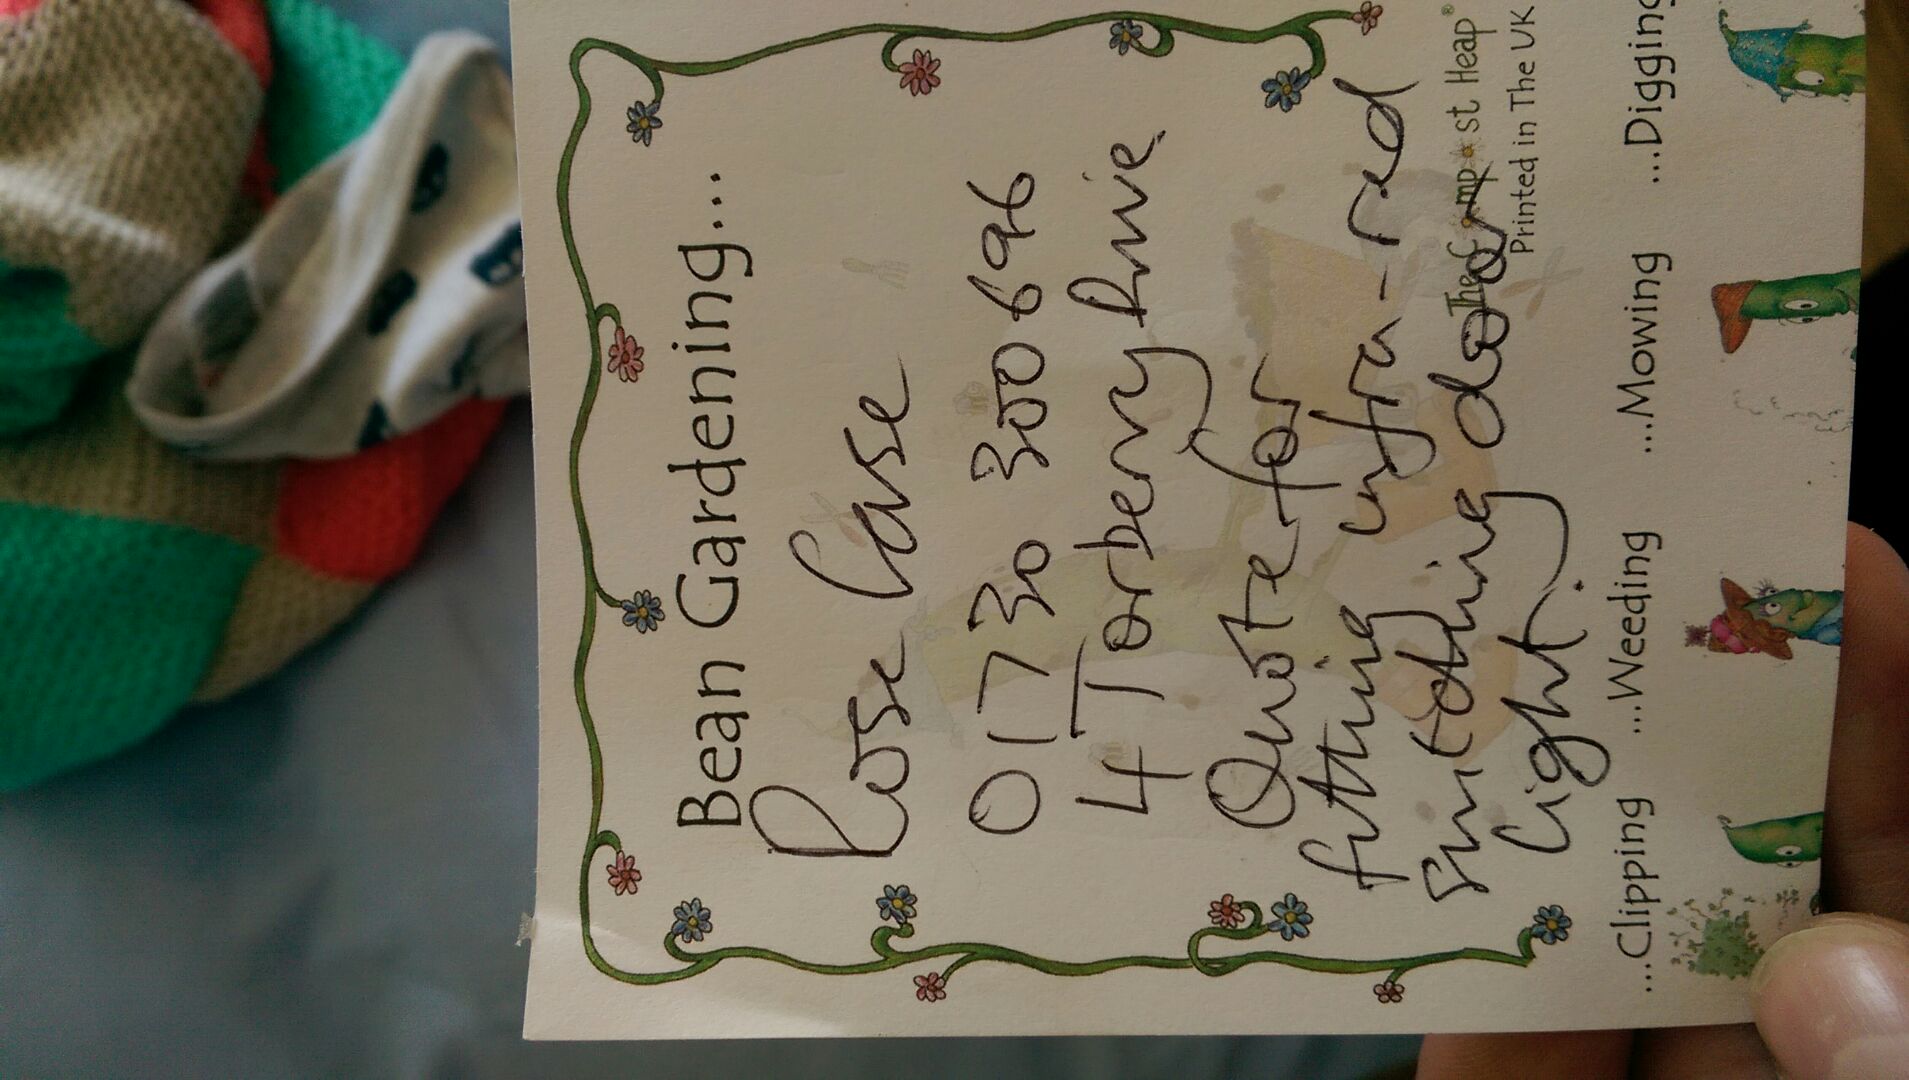 Bean Gardening...
Rose Case
01730 300696
4 Torberry Drive
Quote for
fitting infra-red
switching door
light.
The Compost Heap®
Printed in The UK
...Clipping ...Weeding ...Mowing ...Digging